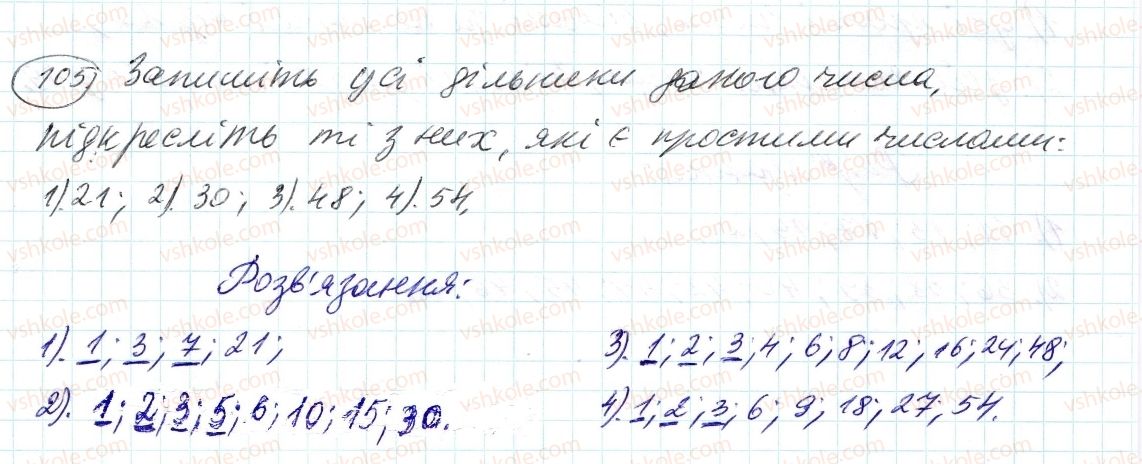 105) Запишіть усі дільники даного числа,
підкресліть ті з них, які є простими числами:
1).21; 2).30; 3).48; 4).54.
Розв'язання:
1). 1; 3; 7; 21;
2). 1; 2; 3; 5; 6; 10; 15; 30.
3). 1; 2; 3; 4; 6; 8; 12; 16; 24; 48;
4). 1; 2; 3; 6; 9; 18; 27; 54.
vshkole.com